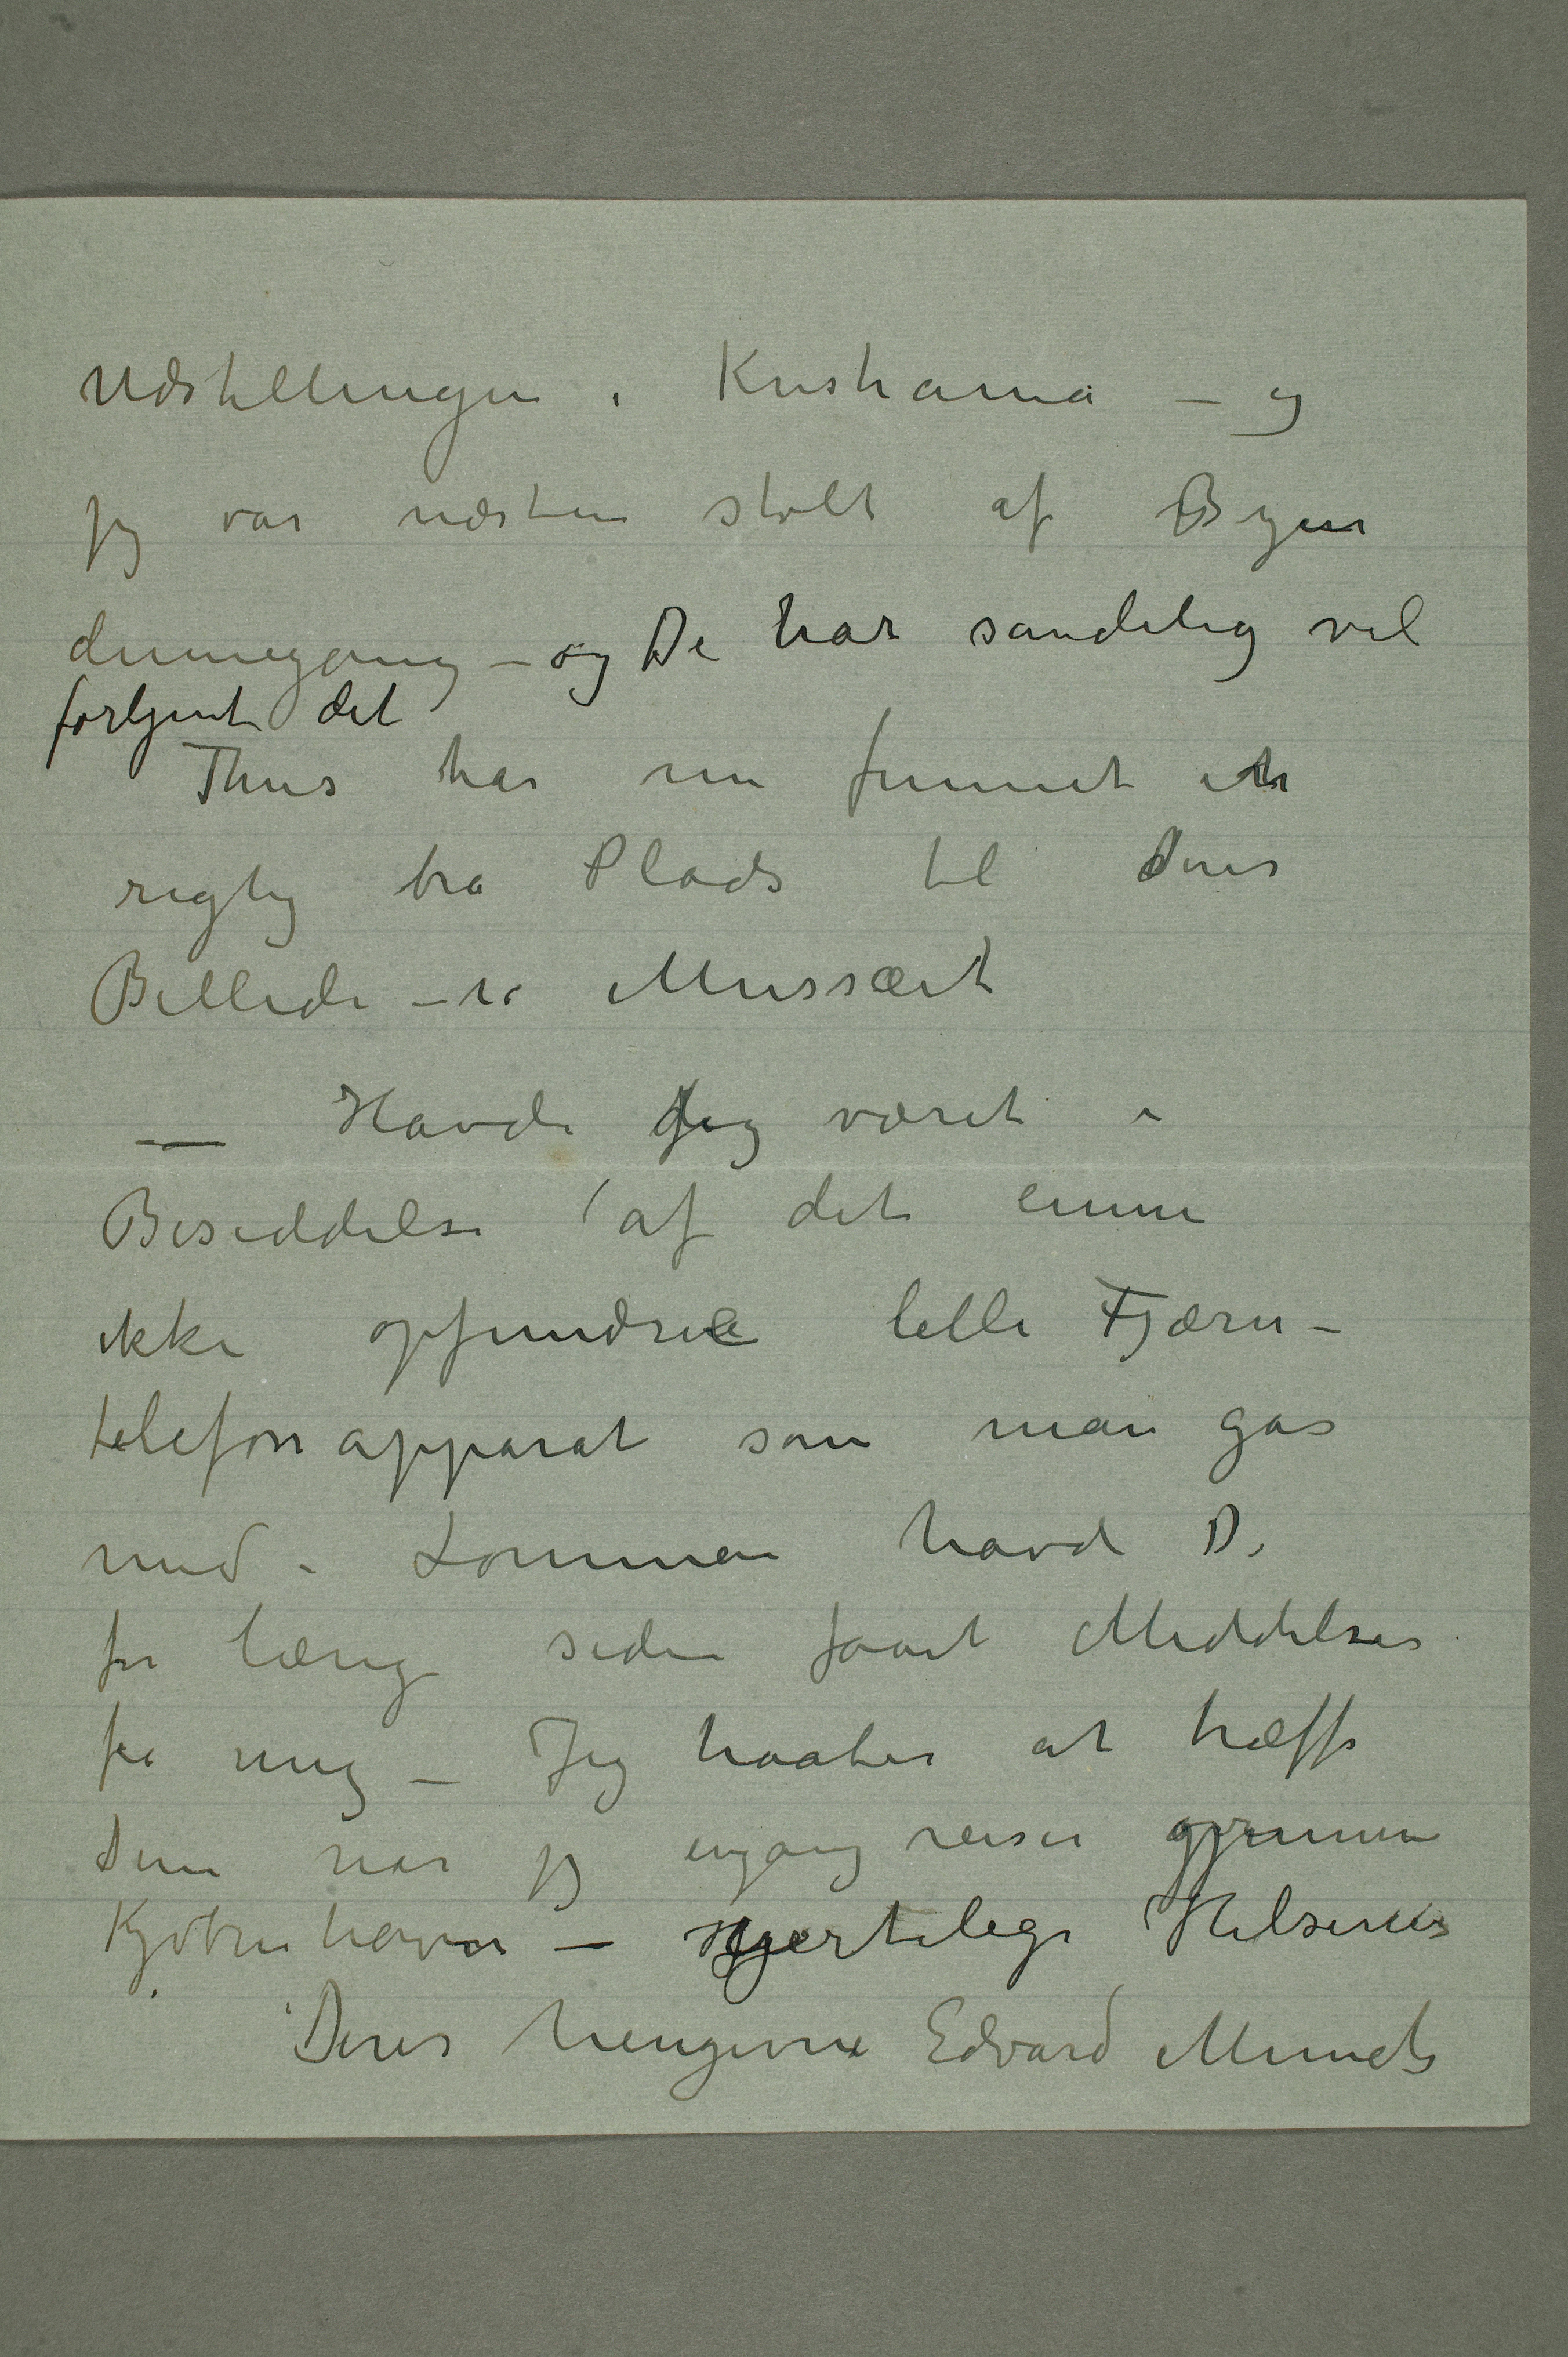 Udstillingen i Kristiania – og
jeg var næsten stolt af Byen
dennegang – og De har sandelig vel
fortjent det
Thiis har nu funnet en
rigtig bra Plads til Deres
Billede – i Mussæet
— Havde Jeg været i
Besiddelse af det ennu
ikke opfundne lille Fjærn-
telefonapparat som man gaar
med i Lommen havde De
for længe siden faaet Meddelser
fra mig – Jeg haaber at træffe
Dem når jeg engang reiser gjennem
Kjøbenhavn – Hjertelige Hilsener
Deres hengivne Edvard Munch